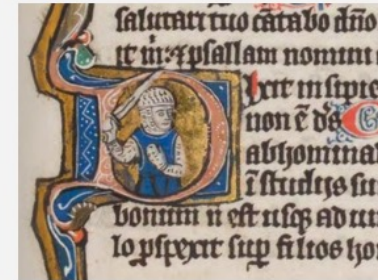 salutari tuo cātabo dn̄o
nomini
Dixit insipie
non ē ds C
abhomina
ī studijs su
bonum n̄ est usq; ad u
lo ꝓspexit sup filios ho